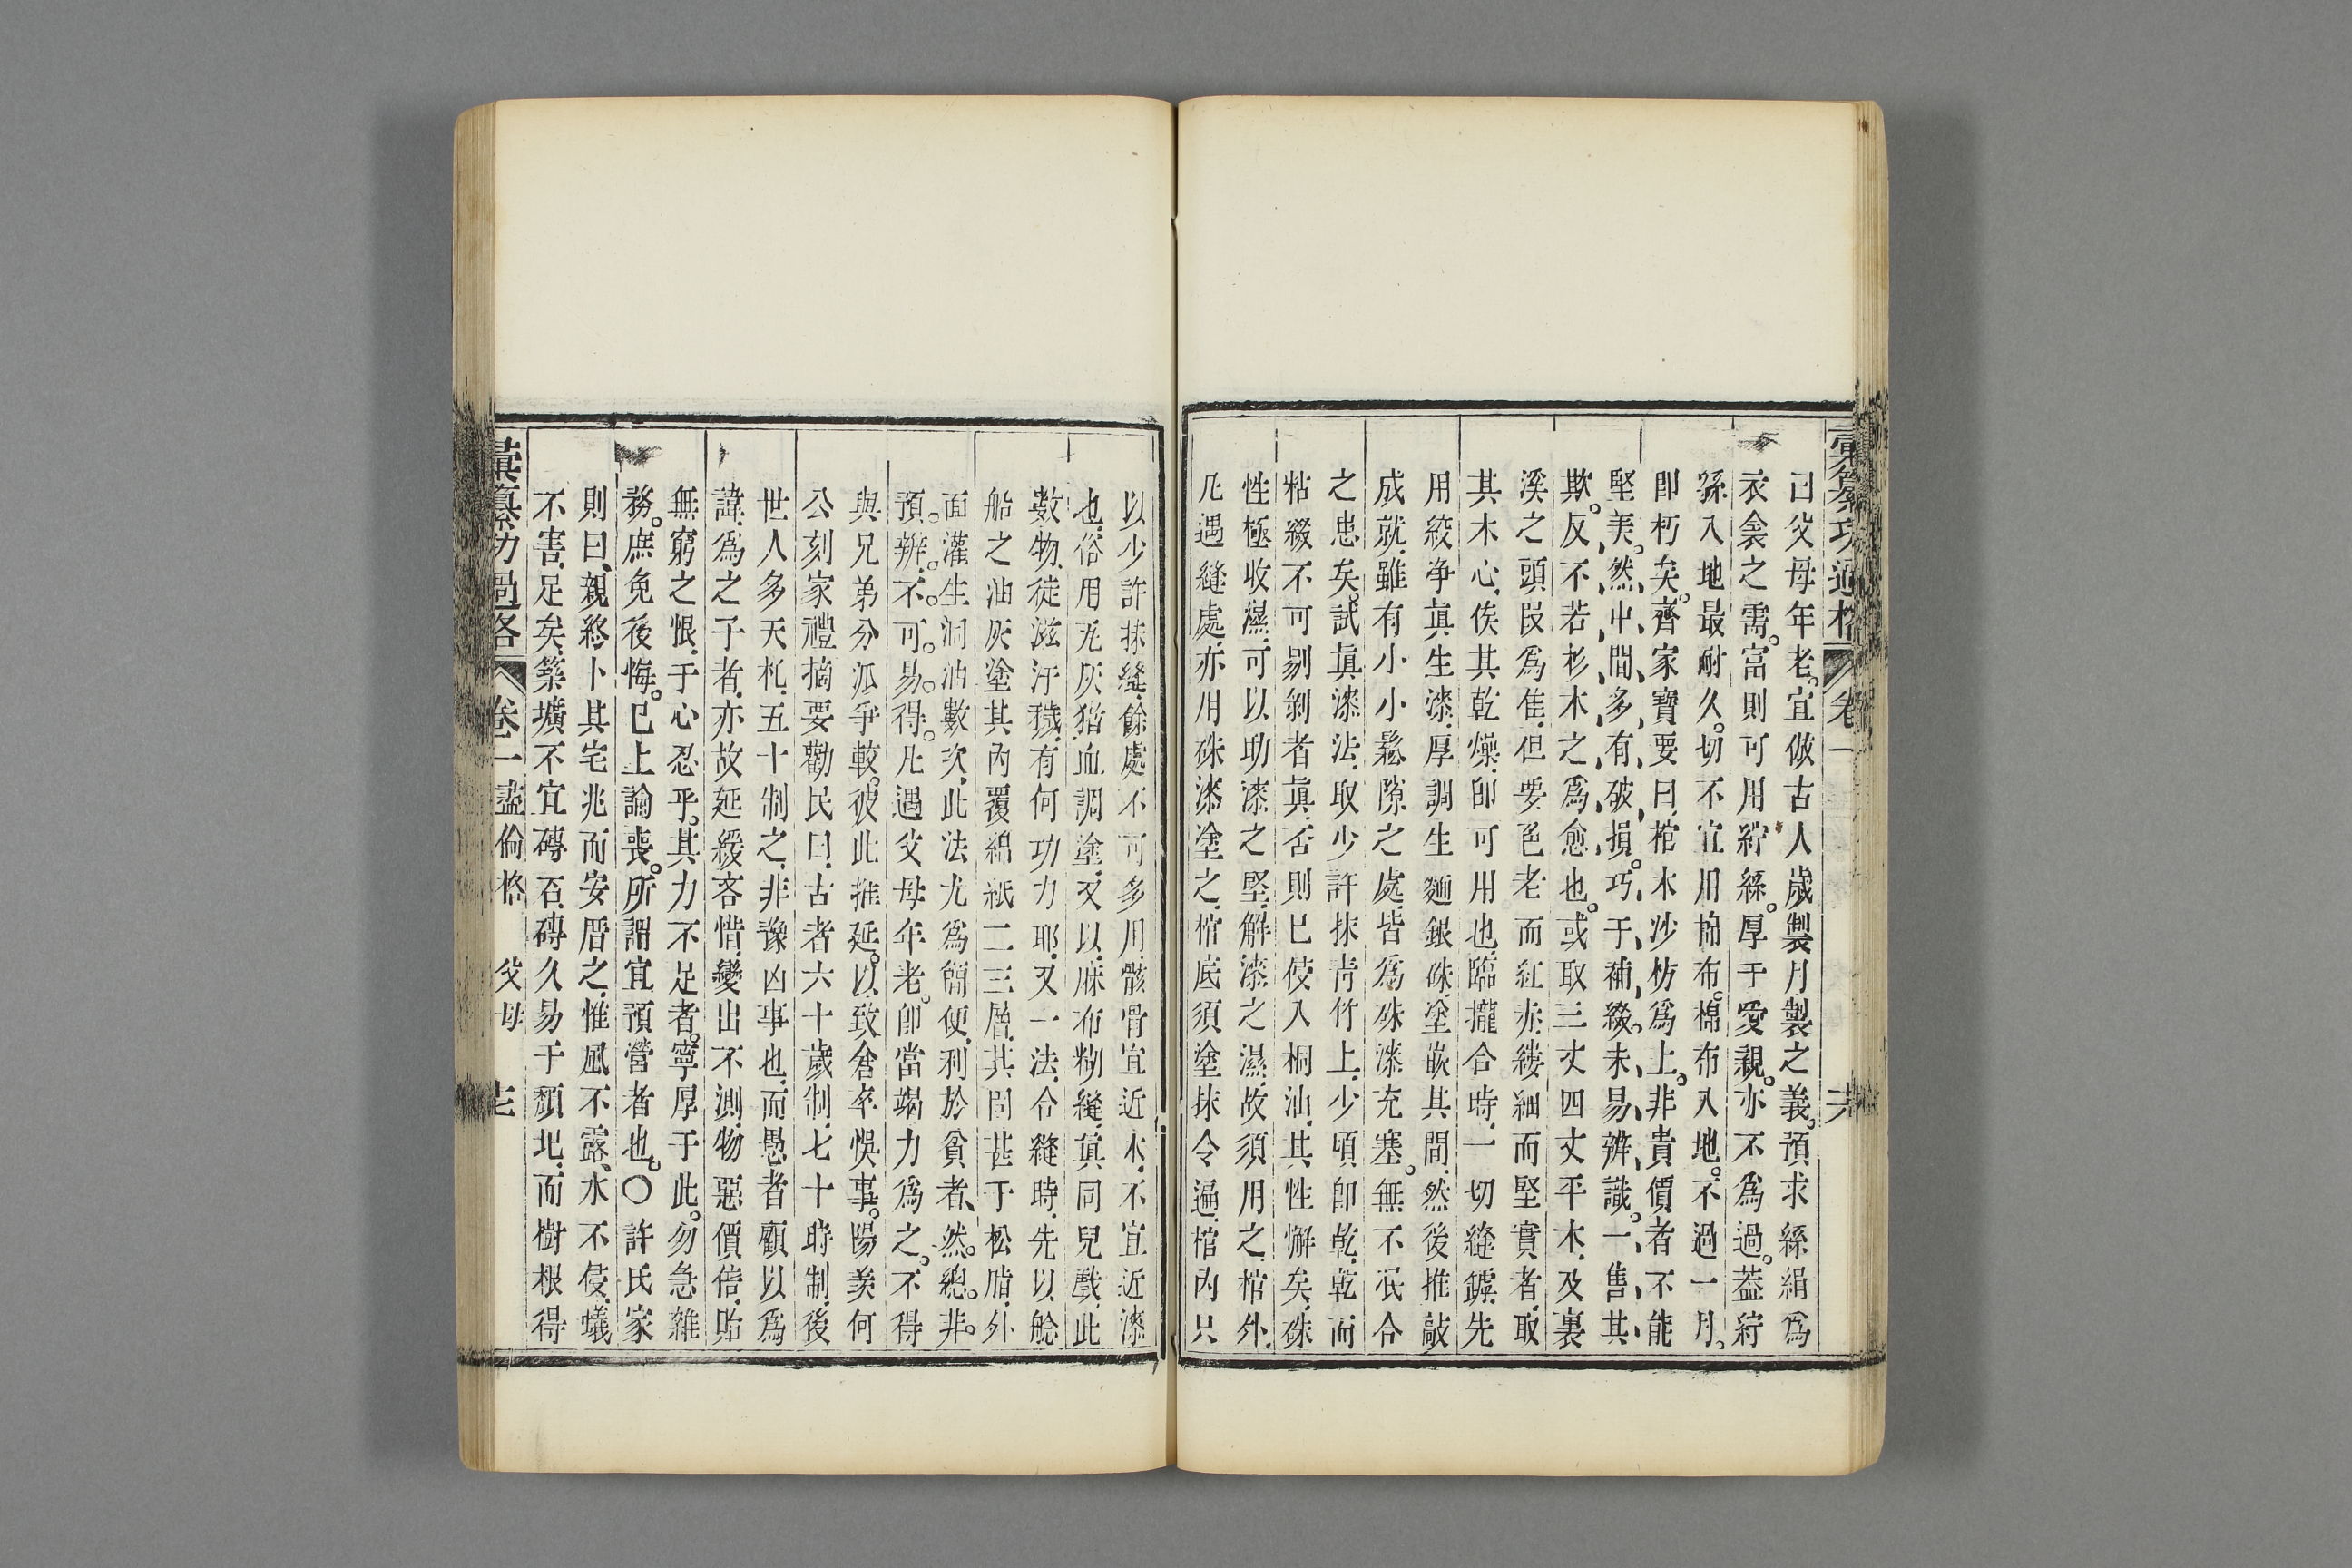 彙纂功過格 卷一 六
曰父母年老。宜倣古人歲製月製之義。預求絲絹爲
衣衾之需。富則可用紵絲。厚于愛親。亦不爲過。葢紵
絲入地最耐久。切不宜用棉布。棉布入地。不過一月。
卽朽矣。齊家寶要曰、棺木沙枋爲上。非貴價者不能
堅美。然中間多有破損。巧于補綴。未易辨識。一售其
欺。反不若杉木之爲愈也。或取三丈四丈平木、及裏
溪之頭段爲佳、但要色老而紅赤、縷細而堅實者、取
其木心、俟其乾燥、卽可用也、臨攏合時、一切縫罅、先
用絞净眞生漆、厚調生麵銀硃、塗嵌其間、然後推敲
成就、雖有小小鬆隙之處、皆爲硃漆充塞。無不泯合
之患矣。試眞漆法、取少許抹靑竹上、少頃卽乾、乾而
粘綴不可剔剝者眞、否則巳使入桐油、其性懈矣、硃
性極收濕、可以助漆之堅、解漆之濕、故須用之、棺外、
凡遇縫處、亦用硃漆塗之、棺底須塗抹令遍、棺內只
以少許抹縫、餘處不可多用、骸骨宜近木、不宜近漆
也、俗用瓦灰猪血調塗、又以麻布糊縫、眞同兒戲、此
數物、徒滋汙穢、有何功力耶、又一法、合縫時、先以艌
船之油灰塗其內覆綿紙二三層、其固甚于松脂、外
面灌生洞油數次、此法尤爲簡便、利於貧者、然。總。非。
預。辨。不。可。易。得。凡遇父母年老。卽當竭力爲之。不得
與兄弟分派爭較。彼此推延。以致倉卒悞事。陽羨何
公刻家禮摘要勸民曰、古者六十歲制、七十時制、後
世人多夭札、五十制之、非豫凶事也、而愚者顧以爲
諱、爲之子者、亦故延緩吝惜、變出不測、物惡價倍、貽
無窮之恨、于心忍乎。其力不足者。寧厚于此。勿急雜
務。庶免後悔。巳上論喪。所謂宜預營者也。○許氏家
則曰、親終、卜其宅兆而安厝之、惟風不露、水不侵、蟻
不害、足矣、築壙不宜磚石、磚久易于頹圮、而樹根得
彙纂功過格 卷一 盡倫格 父母 七